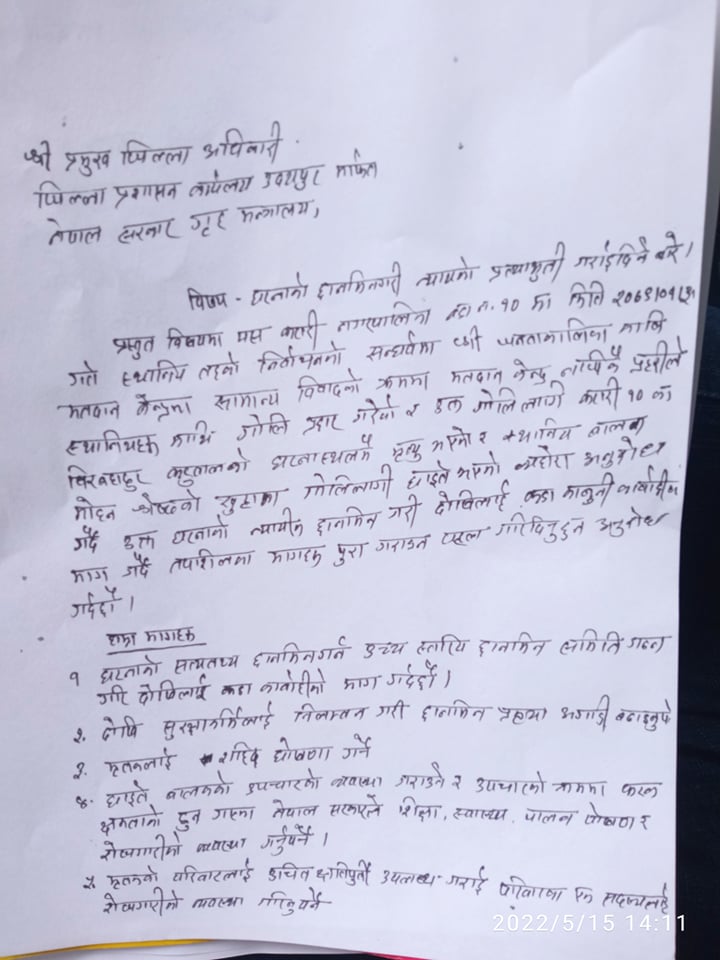 श्री प्रमुख जिल्ला अधिकारी
जिल्ला प्रशासन कार्यलय उदयपुर मार्फत
नेपाल सरकार गृह मन्त्रालय,
विषय - घटनाको छानविनगरी न्यायको प्रत्याभुती गराईदिने बारे।
प्रस्तुत विषयमा यस कटारी नगरपालिका वडा नं. १० मा मिति
गते स्थानिय तहको निर्वाचनको सन्दर्भमा श्री जनता
मतदान केन्द्रमा सामान्य विवादको क्रममा मतदान केन्द्र प्रहरीले
स्थानियहरु माथि गोलि प्रहार गरेको र उक्त गोलि लागि कटारी १० का
को घटनास्थलमै मृत्यु भएको र स्थानिय बालक
मोहन श्रेष्ठको गोलिलागी घाइते भएको अनुरोध
गर्दै उक्त घटनाको न्यायीक छानविन गरी दोषिलाई कडा कानुनी कार्वाहीको
माग गर्दै तपशिलका मागहरु पुरा गराउन पहल गरिदिनुहुन अनुरोध
गर्दछौं।
मागहरु
१ घटनाको सत्यतथ्य छानविनगर्न उच्च स्तरिय छानविन समिति गठन
गरि दोषिलाई कडा कार्वाहीको माग गर्दछौं।
२. दोषि सुरक्षाकर्मिलाई निलम्वन गरी छानविन प्रक्रया अगाडी बढाइनुपर्ने
३. मृतकलाई शहिद घोषणा गर्ने
४. घाइते बालकको उपचारको व्यवस्था गराउने र उपचारको क्रममा
क्षमताको हुन गएमा नेपाल सरकारले शिक्षा, स्वास्थ्य, पालन पोषण र
रोजगारीको व्यवस्था गर्नुपर्ने।
५. मृतकको परिवारलाई उचित क्षतिपुर्ती उपलब्ध गराई परिवारका एक सदस्यलाई
रोजगारीको व्यवस्था गरिनुपर्ने
2022/5/15 14:11